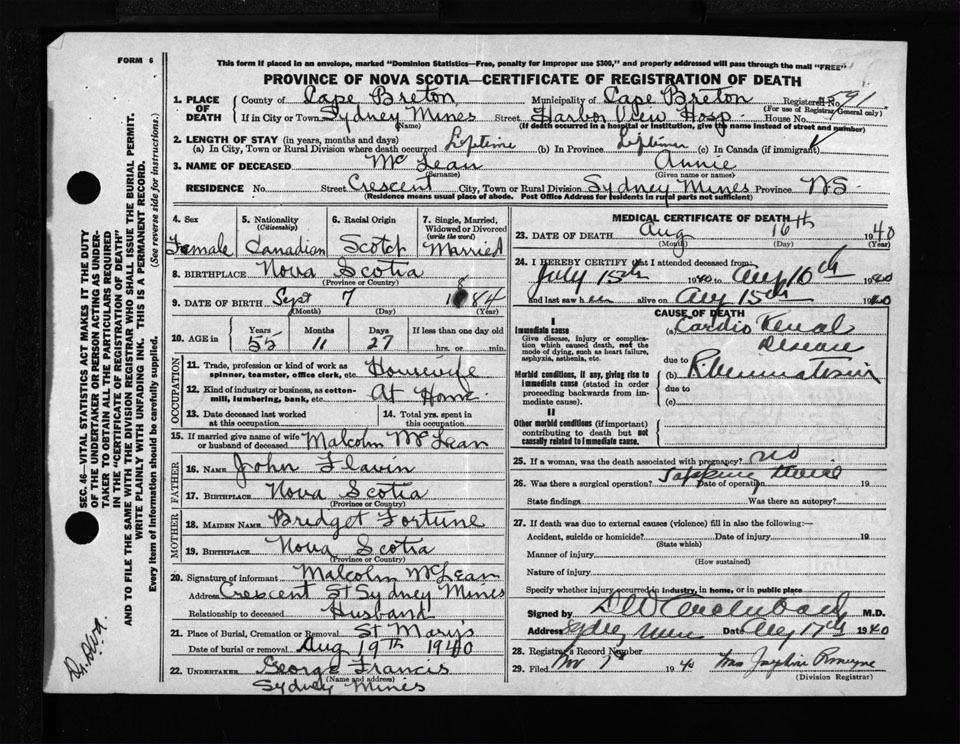 FORM 6
This form if placed in an envelope, marked "Dominion Statistics—Free, penalty for improper use $300," and properly addressed will pass through the mail "FREE"
PROVINCE OF NOVA SCOTIA—CERTIFICATE OF REGISTRATION OF DEATH
1. PLACE OF DEATH County of Cape Breton Municipality of Cape Breton Registered No. 591
(For use of Registrar General only)
If in City or Town Sydney Mines Street Harbor View Hosp House No.
(Name) (If death occurred in a hospital or institution, give the name instead of street and number)
2. LENGTH OF STAY (in years, months and days)
(a) In City, Town or Rural Division where death occurred Liftime (b) In Province Liftime (c) In Canada (if immigrant)
3. NAME OF DECEASED McLean Annie
(Surname) (Given name or names)
RESIDENCE No. Street Crescent City, Town or Rural Division Sydney Mines Province N.S.
(Residence means usual place of abode. Post Office Address for residents in rural parts not sufficient)
4. Sex Female
5. Nationality (Citizenship) Canadian
6. Racial Origin Scotch
7. Single, Married, Widowed or Divorced (write the word) Married
8. BIRTHPLACE Nova Scotia
(Province or Country)
9. DATE OF BIRTH Sept 7 1884
(Month) (Day) (Year)
10. AGE in Years 55 Months 11 Days 27 If less than one day old hrs. or min.
OCCUPATION
11. Trade, profession or kind of work as spinner, teamster, office clerk, etc. Housewife
12. Kind of industry or business, as cotton-mill, lumbering, bank, etc. At Home
13. Date deceased last worked at this occupation
14. Total yrs. spent in this occupation
15. If married give name of wife or husband of deceased Malcolm McLean
FATHER
16. NAME John Flavin
17. BIRTHPLACE Nova Scotia
(Province or Country)
MOTHER
18. MAIDEN NAME Bridget Fortune
19. BIRTHPLACE Nova Scotia
(Province or Country)
20. Signature of informant Malcolm McLean
Address Crescent St Sydney Mines
Relationship to deceased Husband
21. Place of Burial, Cremation or Removal St Marys
Date of burial or removal Aug 19th 1940
22. UNDERTAKER George Francis
(Name and address)
Sydney Mines
MEDICAL CERTIFICATE OF DEATH
23. DATE OF DEATH Aug 16th 1940
(Month) (Day) (Year)
24. I HEREBY CERTIFY that I attended deceased from:
July 15th 1940 to Aug 16th 1940
and last saw h alive on Aug 15th 1940
CAUSE OF DEATH
I
Immediate cause (a) Cardio Renal Disease
Give disease, injury or complication which caused death, not the mode of dying, such as heart failure, asphyxia, asthenia, etc.
due to
Morbid conditions, if any, giving rise to immediate cause (stated in order proceeding backwards from immediate cause). (b) Rheumatism
due to
(c)
II
Other morbid conditions (if important) contributing to death but not causally related to immediate cause.
25. If a woman, was the death associated with pregnancy? no
26. Was there a surgical operation? Date of operation 19
State findings Was there an autopsy?
27. If death was due to external causes (violence) fill in also the following:—
Accident, suicide or homicide? Date of injury 19
(State which)
Manner of injury
(How sustained)
Nature of injury
Specify whether injury occurred in Industry, in home, or in public place
Signed by M.D.
Address Sydney Mines Date Aug 17th 1940
28. Registrar's Record Number
29. Filed Nov 7 1940 Mrs
(Division Registrar)
SEC. 46—VITAL STATISTICS ACT MAKES IT THE DUTY
OF THE UNDERTAKER OR PERSON ACTING AS UNDER-
TAKER TO OBTAIN ALL THE PARTICULARS REQUIRED
IN THE "CERTIFICATE OF REGISTRATION OF DEATH"
AND TO FILE THE SAME WITH THE DIVISION REGISTRAR WHO SHALL ISSUE THE BURIAL PERMIT.
WRITE PLAINLY WITH UNFADING INK. THIS IS A PERMANENT RECORD.
Every item of information should be carefully supplied. (See reverse side for instructions.)